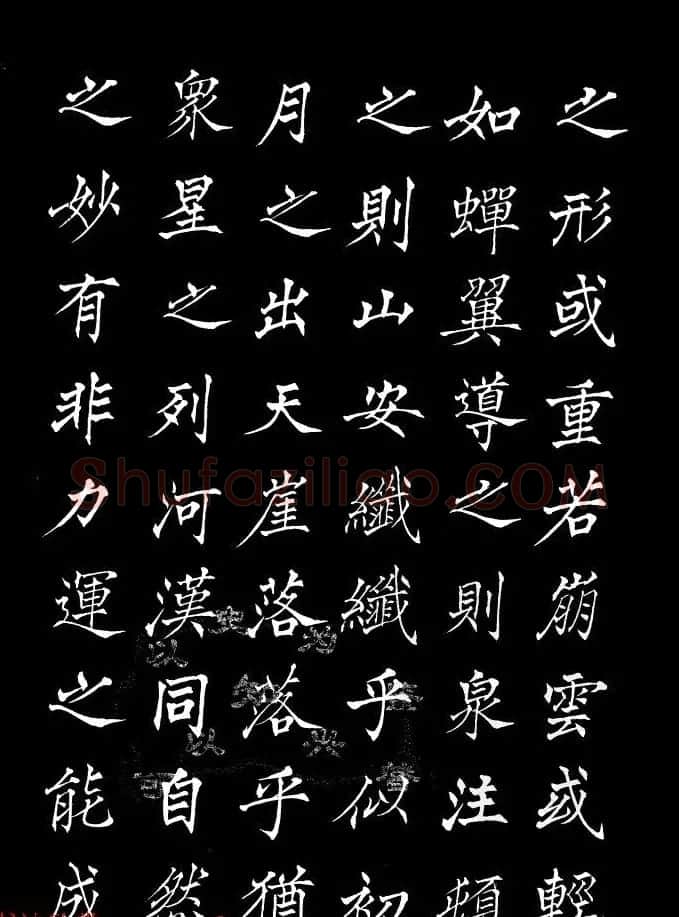 之形或重若崩雲或輕
如蟬翼導之則泉注頓
之則山安纖纖乎似初
月之出天崖落落乎猶
衆星之列河漢同自然
之妙有非力運之能成
Shufaziliao.COM